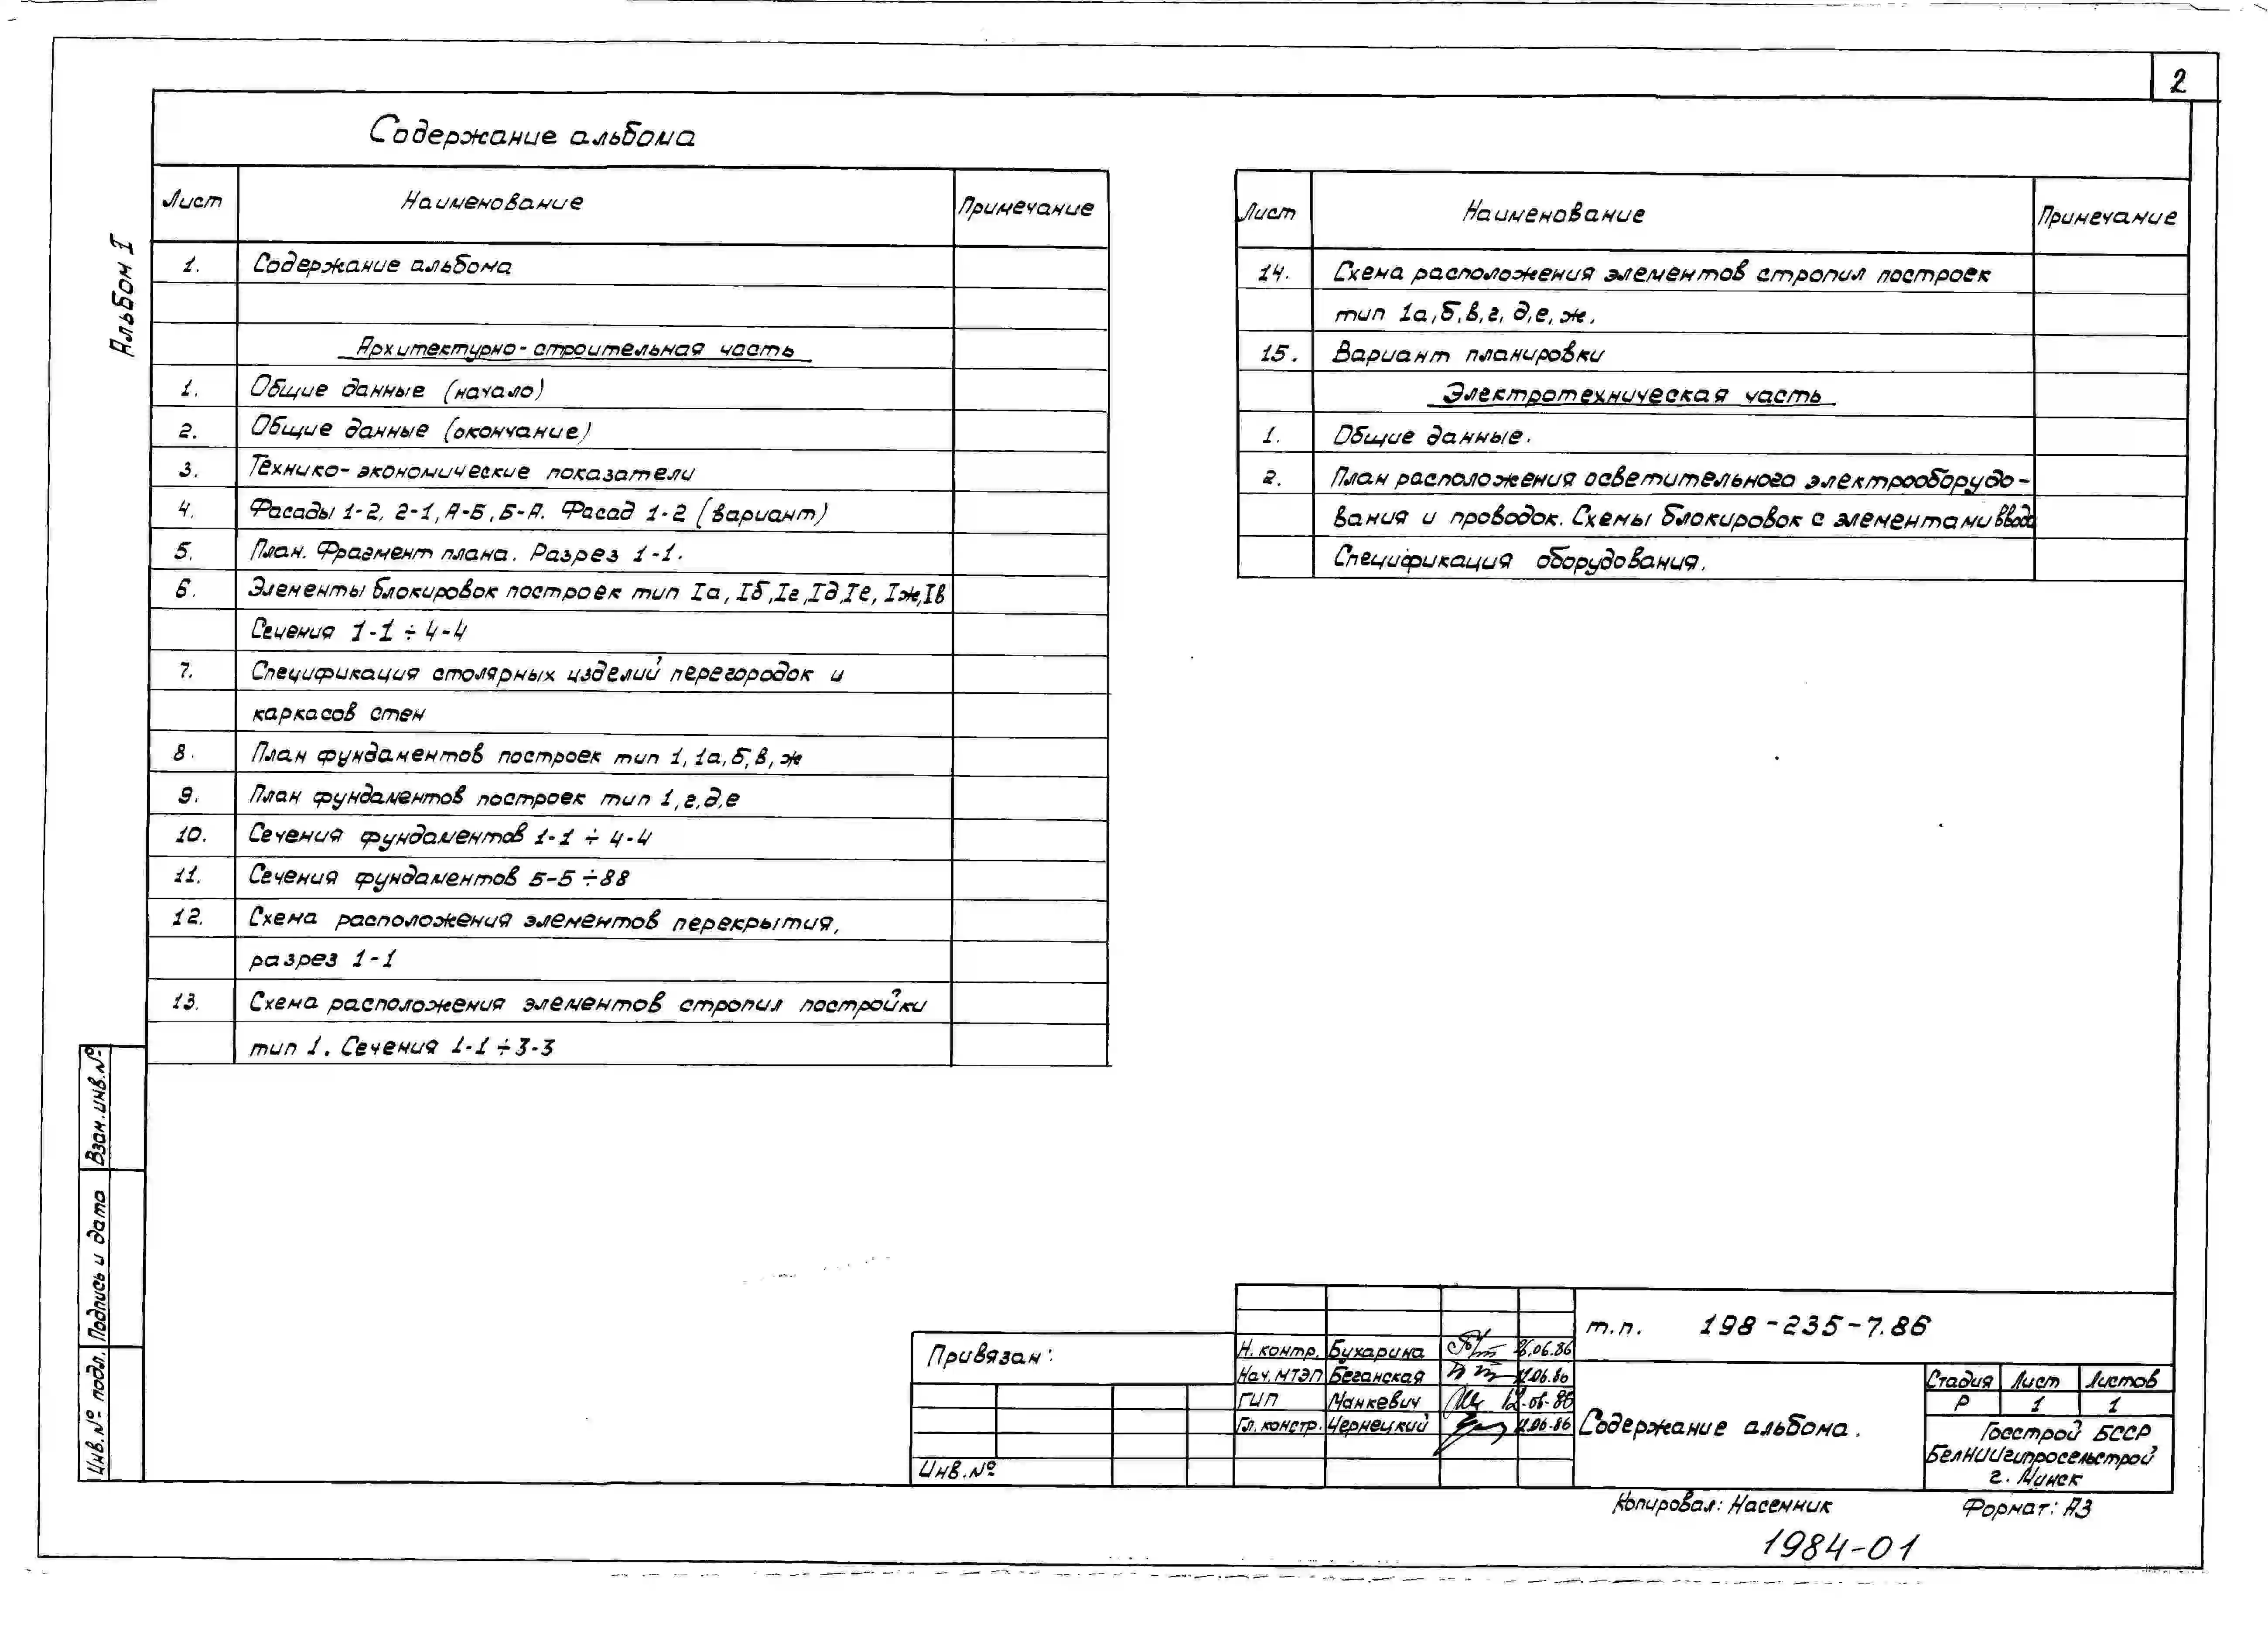 2
Альбом I
Содержание альбома
Лист Наименование Примечание
1. Содержание альбома
Архитектурно-строительная часть
1. Общие данные (начало)
2. Общие данные (окончание)
3. Технико-экономические показатели
4. Фасады 1-2, 2-1, А-Б, Б-А. Фасад 1-2 (вариант)
5. План. Фрагмент плана. Разрез 1-1.
6. Элементы блокировок построек тип Iа, Iб, Iг, Iд, Iе, Iж, Iв
Сечения 1-1 ÷ 4-4
7. Спецификация столярных изделий перегородок и
каркасов стен
8. План фундаментов построек тип 1, 1а, б, в, ж
9. План фундаментов построек тип 1, г, д, е
10. Сечения фундаментов 1-1 ÷ 4-4
11. Сечения фундаментов 5-5 ÷ 88
12. Схема расположения элементов перекрытия,
разрез 1-1
13. Схема расположения элементов стропил постройки
тип 1. Сечения 1-1 ÷ 3-3
Лист Наименование Примечание
14. Схема расположения элементов стропил построек
тип 1а, б, в, г, д, е, ж.
15. Вариант планировки
Электротехническая часть
1. Общие данные.
2. План расположения осветительного электрооборудо-
вания и проводок. Схемы блокировок с элементами ввода
Спецификация оборудования.
Взам.инв.№
Подпись и дата
Инв.№ подл.
Привязан:
Инв.№
Н. контр. Бухарина .06.86
Нач. МТЭП Беганская .06.86
ГИП Манкевич 12.06.86
Гл. констр. Чернецкий .06.86
т.п. 198-235-7.86
Содержание альбома.
Стадия Лист Листов
Р 1 1
Госстрой БССР
БелНИИгипросельстрой
г. Минск
Копировал: Насенник Формат: А3
1984-01